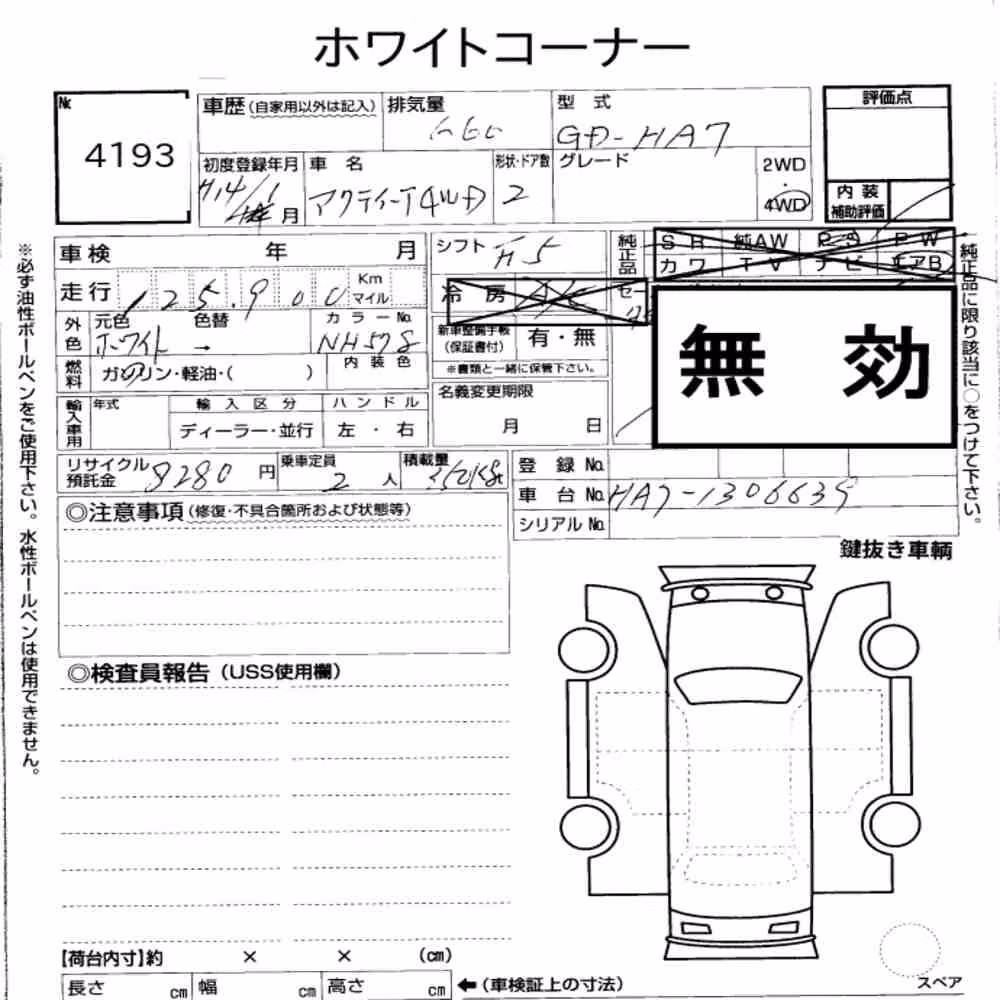 ホワイトコーナー
№ 4193
車歴(自家用以外は記入) 排気量 660 型式 GD-HA7
評価点
初度登録年月 H14/1 年 月 車名 アクティーT4WD 形状・ドア数 2 グレード 2WD 4WD
内装 補助評価
車検 年 月
シフト F5
純正品 SR 純AW PS PW
カワ TV ナビ エアB
走行 125.900 Km マイル
冷房
外色 元色 ホワイト 色替 → カラーNo. NH578
新車整備手帳 (保証書付) 有・無
※書類と一緒に保管下さい。
無効
燃料 ガソリン・軽油・( ) 内装色
名義変更期限 月 日
輸入車用 年式 輸入区分 ディーラー・並行 ハンドル 左・右
リサイクル預託金 8280 円 乗車定員 2 人 積載量 350Kg
登録No.
車台No. HA7-1306639
シリアルNo.
◎注意事項(修復・不具合箇所および状態等)
鍵抜き車輌
◎検査員報告(USS使用欄)
【荷台内寸】約 × × (cm)
長さ cm 幅 cm 高さ cm ←(車検証上の寸法)
スペア
※必ず油性ボールペンをご使用下さい。水性ボールペンは使用できません。
純正品に限り該当に○をつけて下さい。